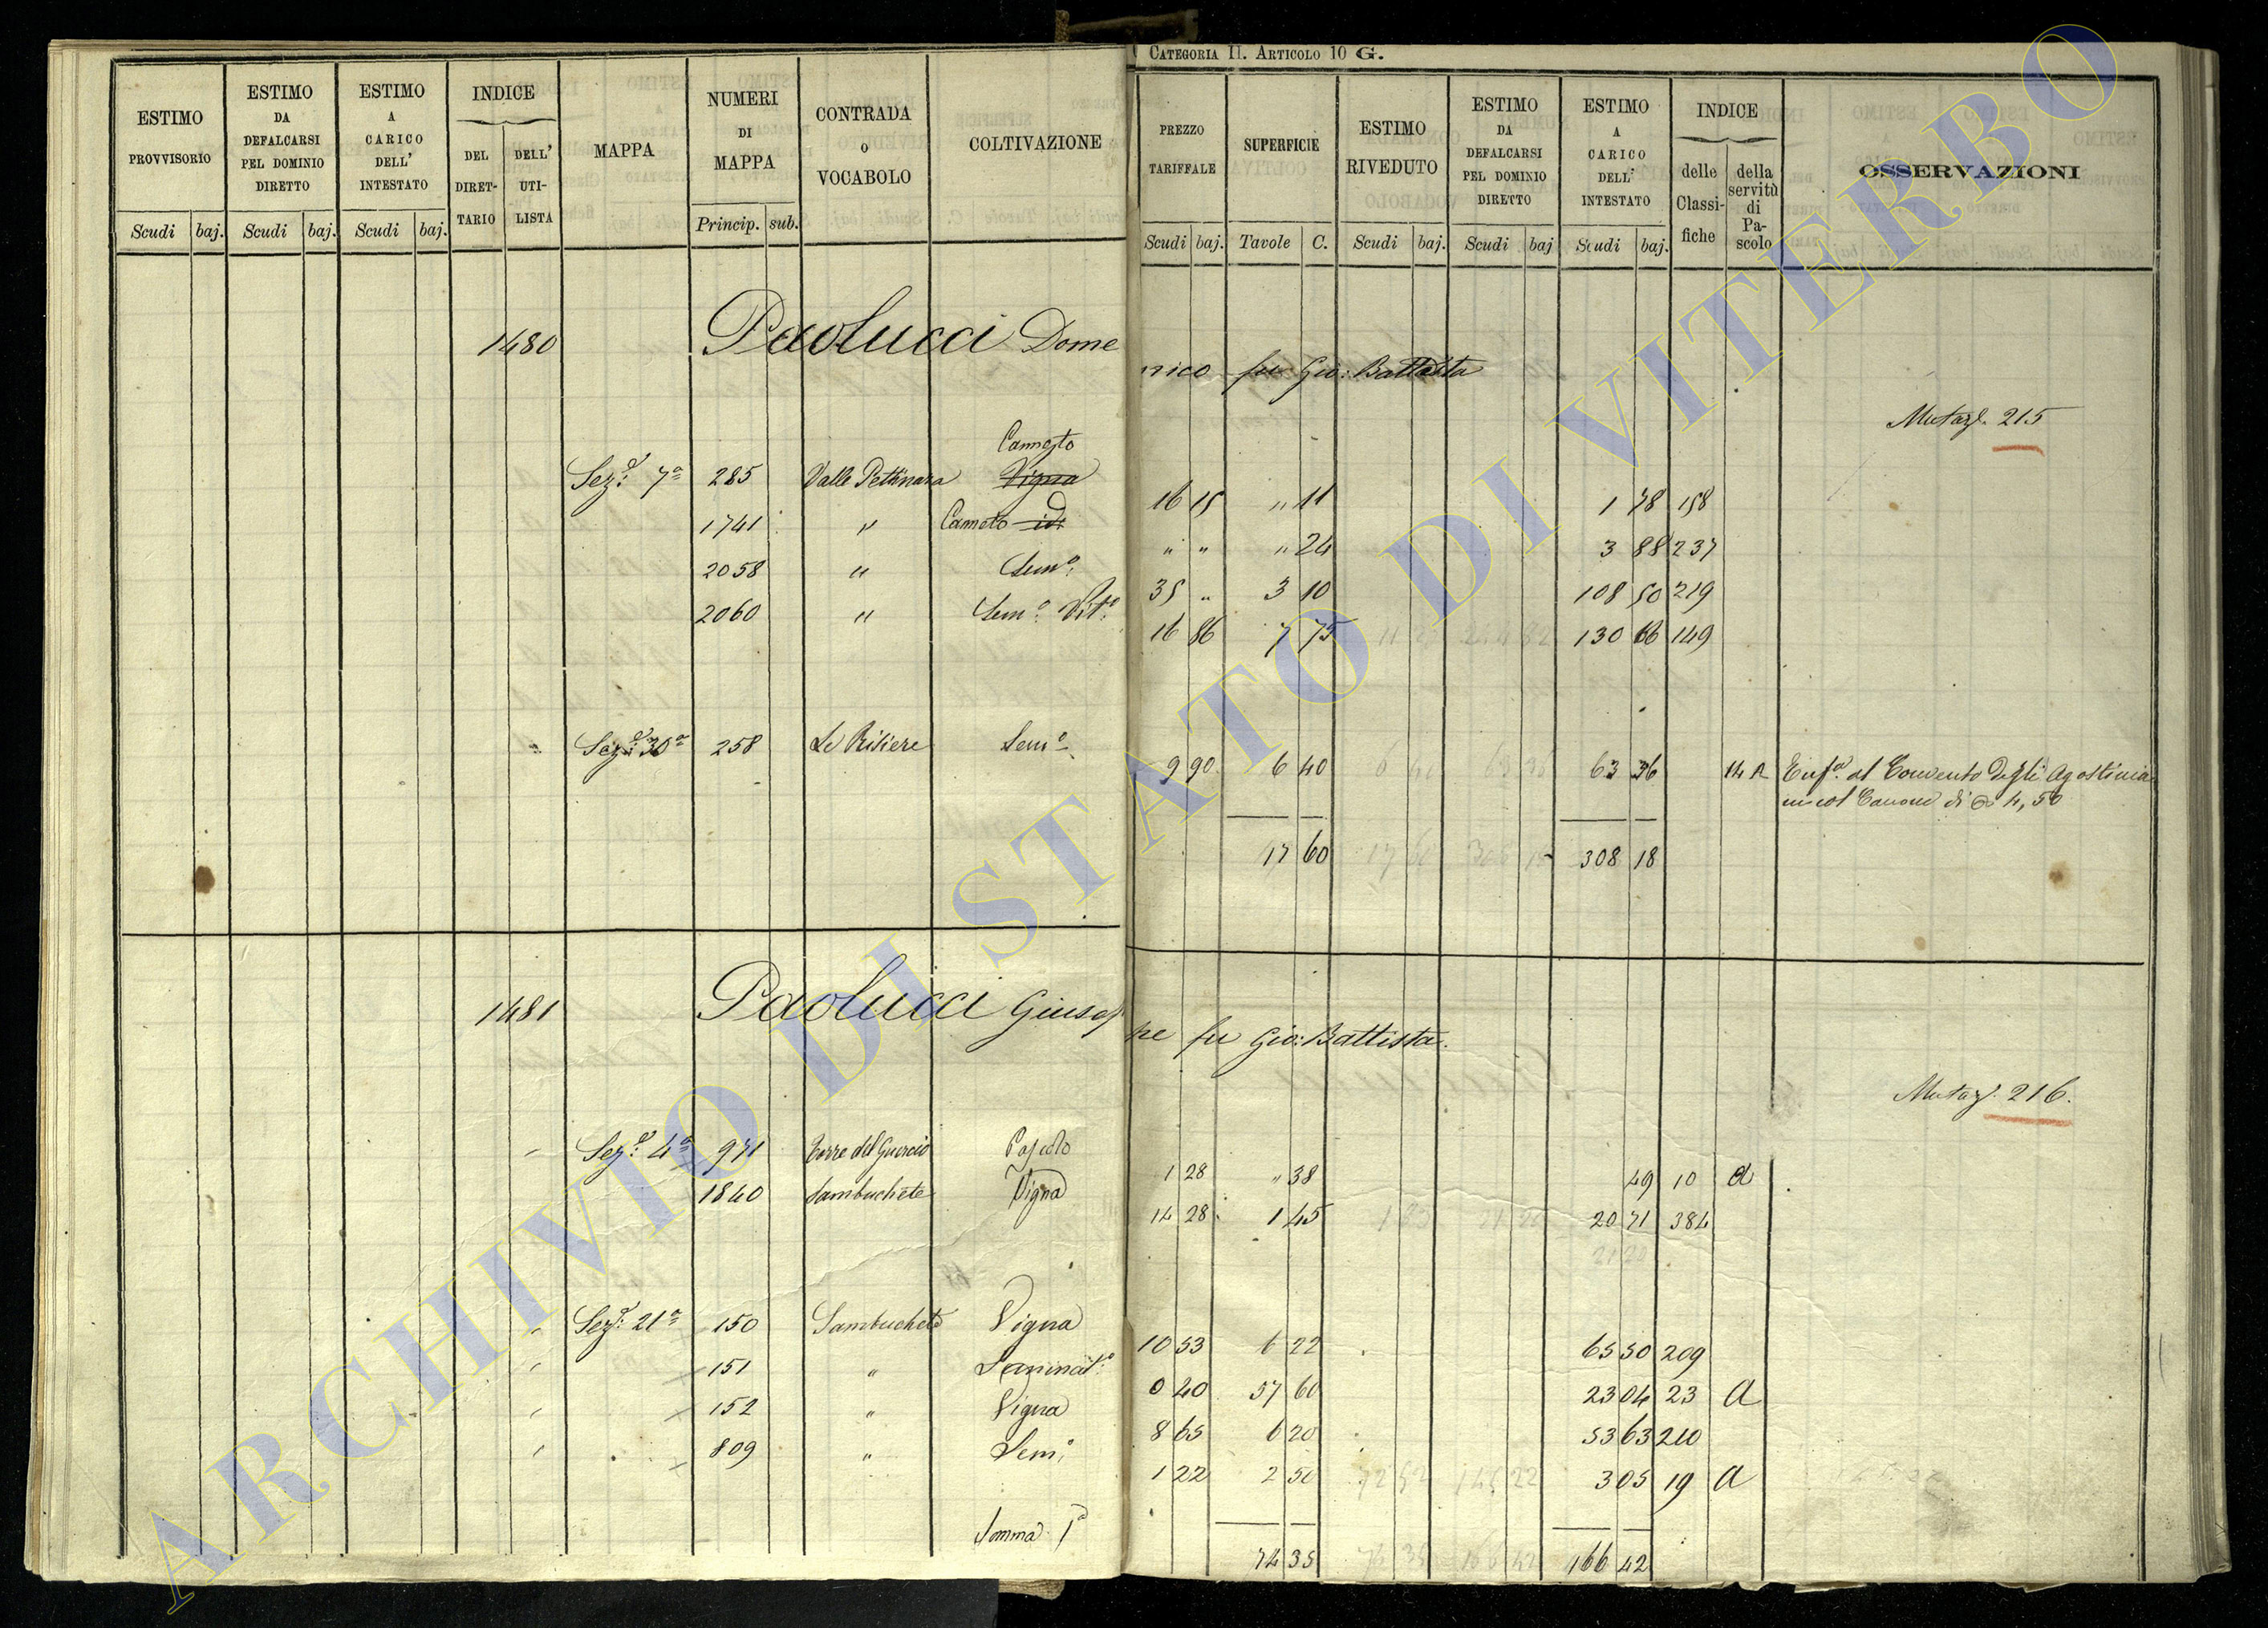 CATEGORIA II. ARTICOLO 10 G.
ESTIMO PROVVISORIO
ESTIMO DA DEFALCARSI PEL DOMINIO DIRETTO
ESTIMO A CARICO DELL' INTESTATO
INDICE
DEL DIRET-TARIO
DELL' UTI-LISTA
MAPPA
NUMERI DI MAPPA
CONTRADA O VOCABOLO
COLTIVAZIONE
PREZZO TARIFFALE
SUPERFICIE
ESTIMO RIVEDUTO
ESTIMO DA DEFALCARSI PEL DOMINIO DIRETTO
ESTIMO A CARICO DELL' INTESTATO
INDICE
delle Classi-fiche
della servitù di Pa-scolo
OSSERVAZIONI
Scudi baj. Scudi baj. Scudi baj. Princip. sub.
Scudi baj. Tavole C. Scudi baj. Scudi baj Scudi baj.
1480 Paolucci Domenico fu Gio: Battista
Mutaz. 215
Canneto
Sez. 7a 285 Valle Pettinara Vigna 16 15 " 11 1 78 158
1741 " Canneto id: " " " 24 3 88 237
2058 " Semo: 35 " 3 10 108 50 219
2060 " Semo: Vito: 16 86 7 75 130 66 149
Sez. 30a 258 Le Risiere Semo 9 90 6 40 63 36 14 A Enfa. al Convento degli Agostinia
ni col Canone di 4,50
17 60 308 18
1481 Paolucci Giuseppe fu Gio: Battista.
Mutaz. 216.
Sez. 4a 971 Torre del Guercio Pascolo 1 28 " 38 49 10 a
1840 Sambuchete Vigna 14 28 1 45 20 71 384
Sez. 21a 150 Sambuchete Vigna 10 53 6 22 65 50 209
151 " Seminato: 0 40 57 60 23 04 23 a
152 " Vigna 8 65 6 20 53 63 210
809 " Semo: 1 22 2 50 3 05 19 a
Somma 1a 74 35 166 42
ARCHIVIO DI STATO DI VITERBO